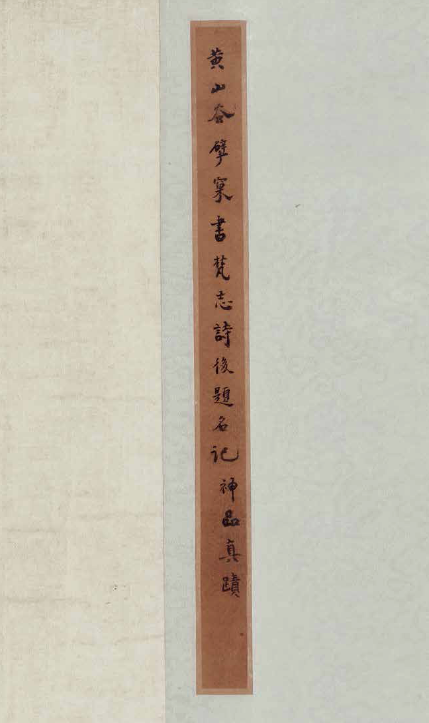 黄山谷擘窠書梵志詩後題名記神品真蹟